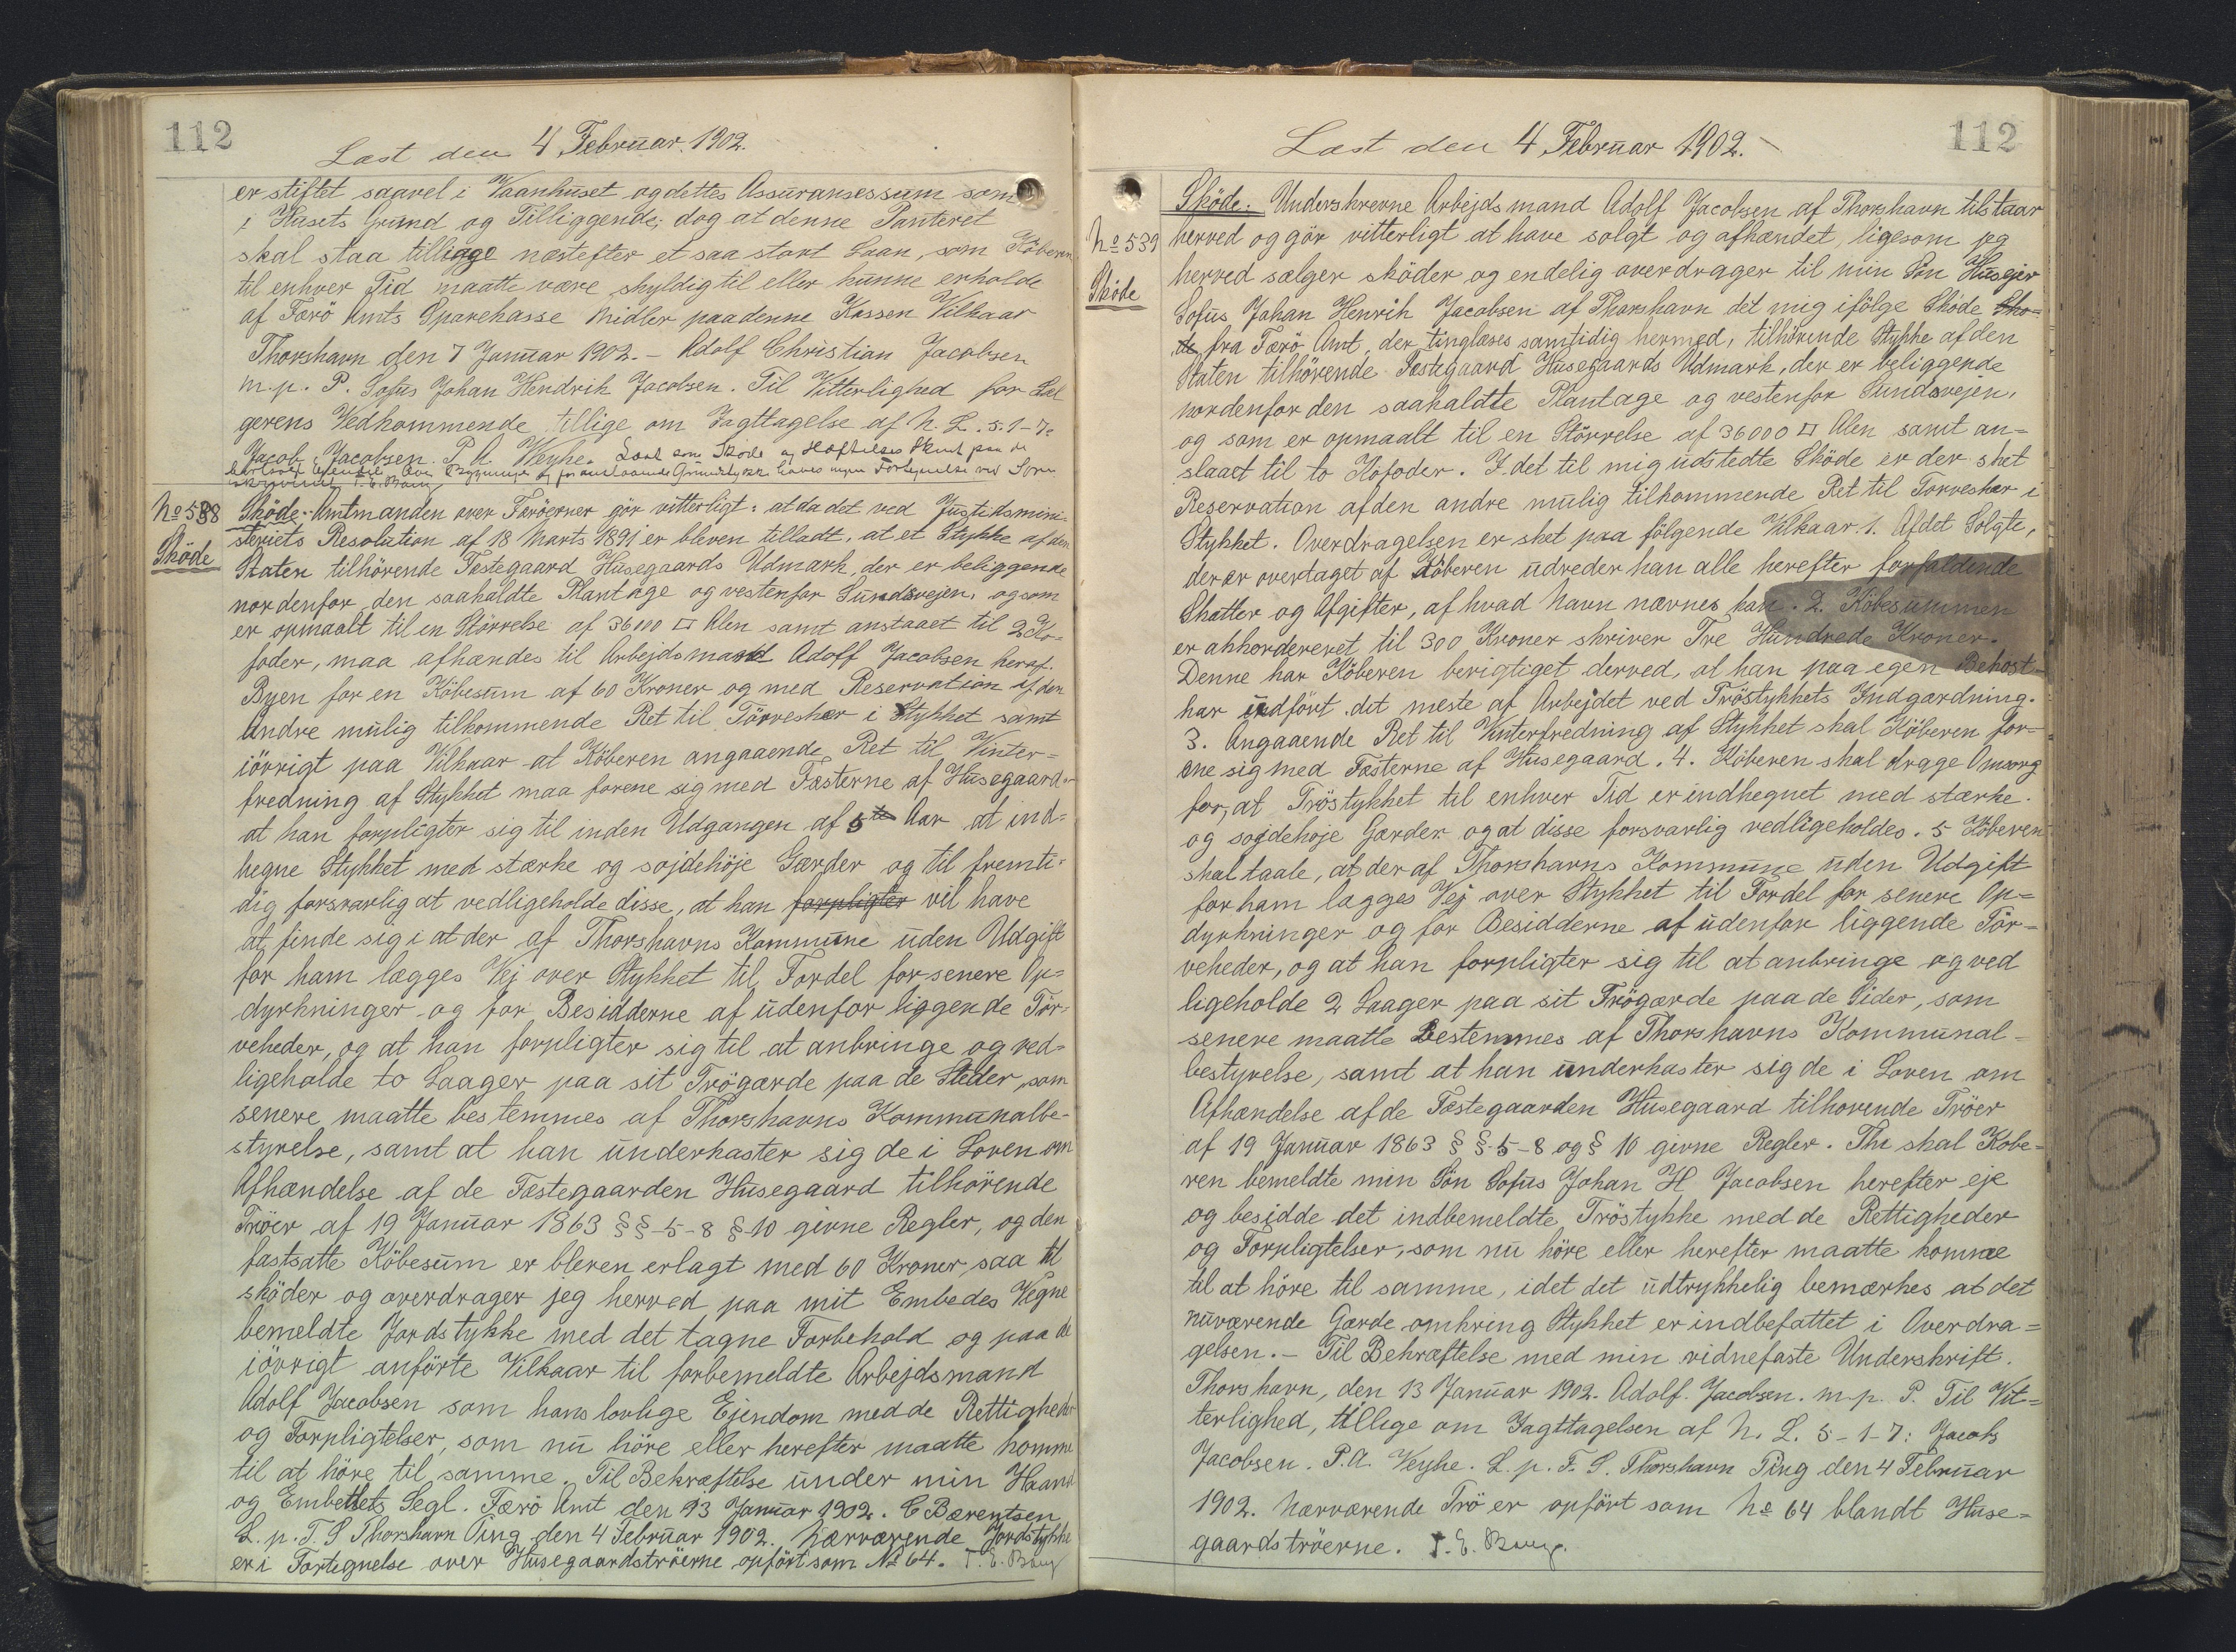 112
Læst den 4 Februar 1902.
er stiftet saavel i Vaanhuset og dettes Assuransessum som
i Husets Grund og Tilliggende; dog at denne Panteret
skal staa tillige næstefter et saa stort Laan, som Köberen
til enhver Tid maatte være skyldig til eller kunne erholde
af Færö Amts Sparekasse Midler paa denne Kassen Vilkaar
Thorshavn den 7 Januar 1902. – Adolf Christian Jacobsen
m.p. P. Sofus Johan Hendrik Jacobsen. Til Vitterlighed for Sæl
gerens Vedkommende tillige om Iagttagelse af N. L. 5.1-7.
Jacob Jacobsen. P. A. Weyhe. Læst som Sköde og Hæftelses Stiftelse paa
T. E. Bang
No 538
Sköde
Sköde. Amtmanden over Færöerner gör vitterligt: at da det ved Justitsmini-
steriets Resolution af 18 Marts 1891 er bleven tilladt, at et Stykke af den
Staten tilhörende Fæstegaard Husegaards Udmark, der er beliggende
nordenfor den saakaldte Plantage og vestenfor Sundsvejen, og som
er opmaalt til en Störrelse af 36000 □ Alen samt anslaaet til 2 Ko-
foder, maa afhændes til Arbejdsmand Adolf Jacobsen heraf
Byen for en Köbesum af 60 Kroner og med Reservation af den
Andre mulig tilkommende Ret til Törveskær i Stykket samt
iövrigt paa Vilkaar at Köberen angaaende Ret til Vinter=
fredning af Stykket maa forene sig med Fæsterne af Husegaard
at han forpligter sig til inden Udgangen af 5te Aar at ind=
hegne Stykket med stærke og sojdehöje Gærder og til fremti-
dig forsvarlig at vedligeholde disse, at han forpligter vil have
at finde sig i at der af Thorshavns Kommune uden Udgift
for ham lægges Vej over Stykket til Fordel for senere Op=
dyrkninger og for Besidderne af udenfor liggende Tör-
veheder, og at han forpligter sig til at anbringe og ved=
ligeholde to Laager paa sit Trögærde paa de Steder, som
senere maatte bestemmes af Thorshavns Kommunalbe-
styrelse, samt at han underkaster sig de i Loven om
Afhændelse af de Fæstegaarden Husegaard tilhörende
Tröer af 19 Januar 1863 §§-5-8 §-10 givne Regler, og den
fastsatte Köbesum er bleven erlagt med 60 Kroner, saa til
sköder og overdrager jeg herved paa mit Embedes Vegne
bemeldte Jordstykke med det tagne Forbehold og paa de
iövrigt anförte Vilkaar til forbemeldte Arbejdsmand
Adolf Jacobsen som hans lovlige Ejendom med de Rettigheder
og Forpligtelser, som nu höre eller herefter maatte komme
til at höre til samme. Til Bekræftelse under min Haand
og Embedets Segl. Færö Amt den 13 Januar 1902. C Bærentsen
L. p. T. S Thorshavn Ting den 4 Februar 1902. Nærværende Jordstykke
er i Fortegnelse over Husegaardströerne opfört som No 64. T. E. Bang
112
Læst den 4 Februar 1902.
No 539
Sköde
Sköde. Underskrevne Arbejdsmand Adolf Jacobsen af Thorshavn tilstaar
herved og gör vitterligt at have solgt og afhændet, ligesom jeg
herved sælger sköder og endelig overdrager til min Sön Husejer
Sofus Johan Henrik Jacobsen af Thorshavn det mig ifölge Sköde Skö=
de fra Færö Amt, der tinglæses samtidig hermed, tilhörende Stykke af den
Staten tilhörende Fæstegaard Husegaards Udmark, der er beliggende
nordenfor den saakaldte Plantage og vestenfor Sundsvejen,
og som er opmaalt til en Störrelse af 36000 □ Alen samt an=
slaaet til to Kofoder. I det til mig udstedte Sköde er der sket
Reservation af den andre mulig tilkommende Ret til Torveskær i
Stykket. Overdragelsen er sket paa fölgende Vilkaar. 1. Af det Solgte,
der er overtaget af Köberen udreder han alle herefter forfaldende
Skatter og Afgifter, af hvad Navn nævnes kan. 2. Köbesummen
er akkorderet til 300 Kroner skriver Tre Hundrede Kroner.
Denne har Köberen berigtiget derved, at han paa egen Bekost-
har udfört det meste af Arbejdet ved Tröstykkets Indgærdning.
3. Angaaende Ret til Vinterfredning af Stykket skal Köberen for-
ene sig med Fæsterne af Husegaard. 4. Köberen skal drage Omsorg
for, at Tröstykket til enhver Tid er indhegnet med stærke
og sojdehöje Gærder og at disse forsvarlig vedligeholdes. 5 Köberen
skal taale, at der af Thorshavns Kommune uden Udgift
for ham lægges Vej over Stykket til Fordel for senere Op=
dyrkninger og for Besidderne af udenfor liggende Tör=
veheder, og at han forpligter sig til at anbringe og ved
ligeholde 2 Laager paa sit Trögærde paa de Sider, som
senere maatte Bestemmes af Thorshavns Kommunal-
bestyrelse, samt at han underkaster sig de i Loven om
Afhændelse af de Fæstegaarden Husegaard tilhorende Tröer
af 19 Januar 1863 § §-5-8 og § 10 givne Regler. Thi skal Köbe=
ren bemeldte min Sön Sofus Johan H Jacobsen herefter eje
og besidde det indbemeldte Tröstykke med de Rettigheder
og Forpligtelser, som nu höre eller herefter maatte komme
til at höre til samme, idet det udtrykkelig bemærkes at det
nuværende Gærde omkring Stykket er indbefattet i Overdra=
gelsen. – Til Bekræftelse med min vidnefaste Underskrift.
Thorshavn, den 13 Januar 1902. Adolf Jacobsen. m.p. P. Til Vit=
terlighed, tillige om Iagttagelsen af N. L. 5-1-7: Jacob
Jacobsen. P.A. Weyhe. L. p. T. S. Thorshavn Ting den 4 Februar
1902. Nærværende Trö er opfört som No 64 blandt Huse=
gaardströerne. T. E. Bang.